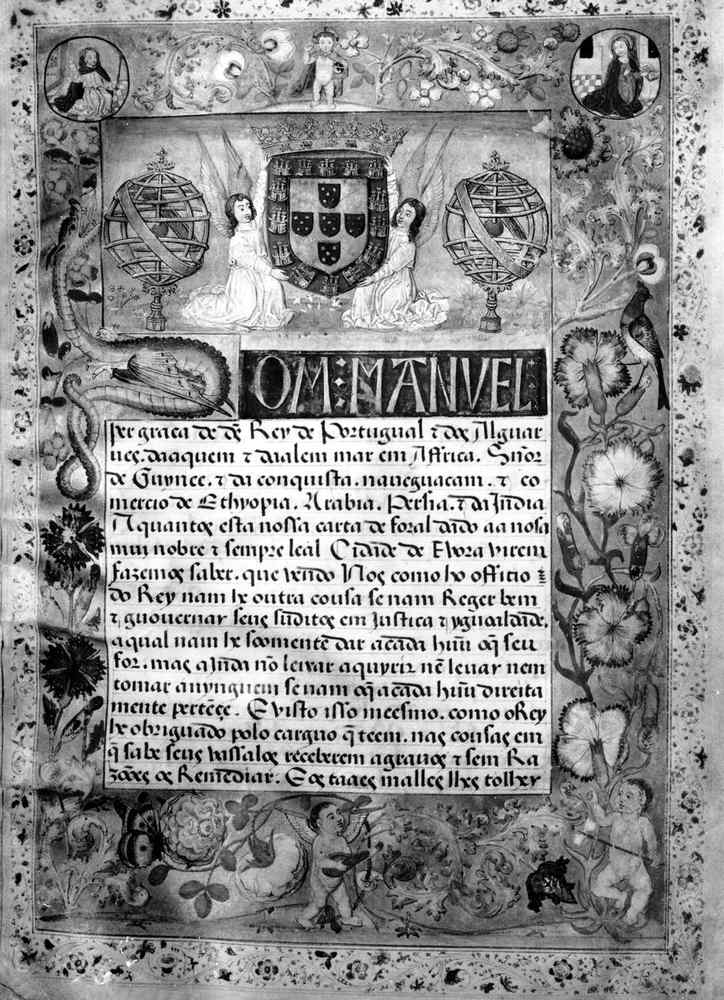 DOM: MANVEL
per graca de ds̃ Rey de Portugual ⁊ dos Alguar
ues, daaquem ⁊ daalem mar em Affrica. Sñor
de Guynee. ⁊ da conquista. naueguacam. ⁊ co
mercio de Ethyopia. Arabia. Persia. ⁊ da Jndia
A quantos esta nossa carta de foral dado aa nosa
mui nobre ⁊ sempre leal Cidade de Evora virem
fazemos saber. que vendo Nos como ho officio
do Rey nam he outra cousa se nam Reger bem
⁊ guouernar seus suditos em Justica ⁊ ygualdade.
a qual nam he soomente dar a cada hũu o q̃ seu
for. mas ajnda nõ leixar aquyrir nẽ leuar nem
tomar a nynguem se nam o q̃ a cada hũu direita
mente pertẽçe. E visto isso meesmo. como o Rey
he obriguado polo carguo q̃ teem. nas cousas em
q̃ sabe seus vassalos receberem agrauos ⁊ sem Ra
zoões os Remediar. E os taaes malles lhes tolher